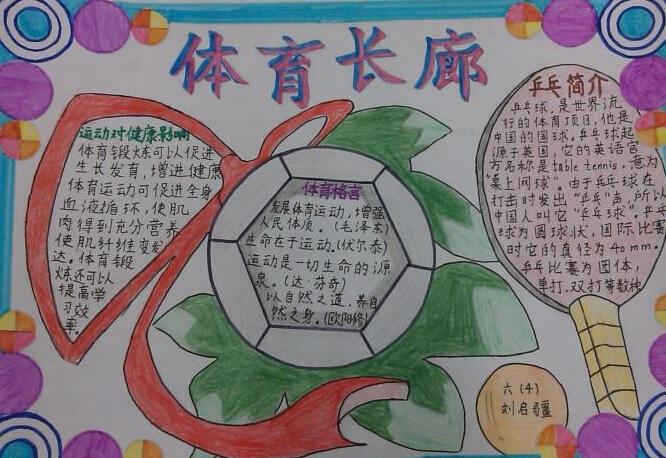 体育长廊
运动对健康影响
体育锻炼可以促进
生长发育，增进健康
体育运动可促进全身
血液循环，使肌
肉得到充分营养
使肌纤维变发
达。体育锻
炼还可以
提高学
习效
率。
体育格言
发展体育运动，增强
人民体质。（毛泽东）
生命在于运动.(伏尔泰)
运动是一切生命的源
泉。（达·芬奇）
以自然之道，养自
然之身。(欧阳修)
乒乓简介
乒乓球，是世界流
行的体育项目，他是
中国的国球，乒乓球起
源于英国，它的英语官
方名称是table tennis，意为
“桌上网球”。由于乒乓球在
打击时发出“乒乓”声，所以
中国人叫它“乒乓球”。乒乓
球为圆球状，国际比赛
时它的直径为40mm。
乒乓比赛为团体，
单打，双打等数种
六（4）
刘启疆